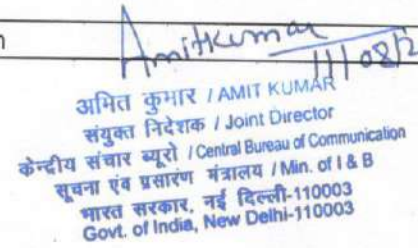 Amitkumar
11/08/2
अमित कुमार / AMIT KUMAR
संयुक्त निदेशक / Joint Director
केन्द्रीय संचार ब्यूरो / Central Bureau of Communication
सूचना एवं प्रसारण मंत्रालय / Min. of I & B
भारत सरकार, नई दिल्ली-110003
Govt. of India, New Delhi-110003